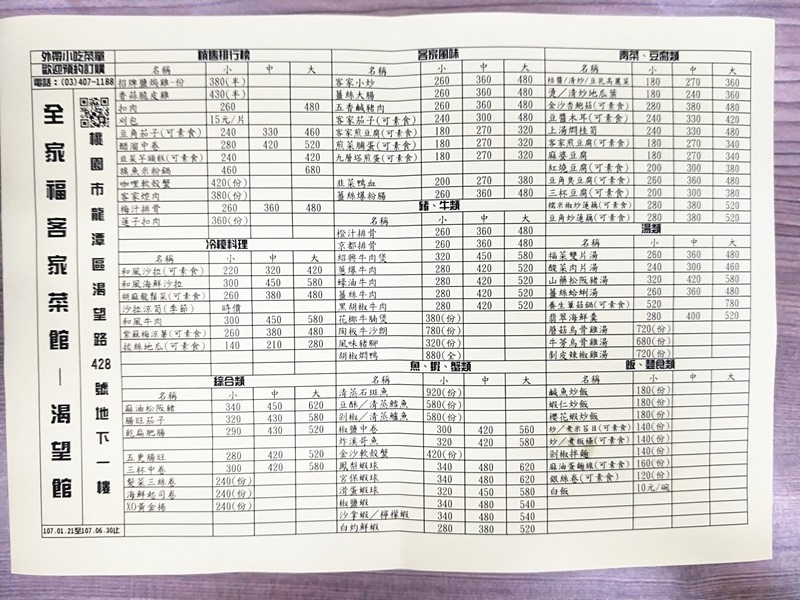 外帶小吃菜單
歡迎預約訂購
電話：(03)407-1188
全家福客家菜館—渴望館
桃園市龍潭區渴望路428號地下一樓
107.01.21至107.06.30止
銷售排行榜
名稱 小 中 大
招牌鹽焗雞-份 380(半)
香菇脆皮雞 430(半)
扣肉 260 480
刈包 15元/片
豆角茄子(可素食) 240 330 460
醋溜中卷 280 420 520
韭菜芋頭糕(可素食) 240 420
旗魚米粉鍋 460 680
咖哩軟殼蟹 420(份)
客家焢肉 380(份)
梅汁排骨 260 360 480
蓮子扣肉 360(份)
冷棧料理
名稱 小 中 大
和風沙拉(可素食) 220 320 420
和風海鮮沙拉 300 450 580
胡麻龍鬚菜(可素食) 260 380 480
沙拉涼筍(季節) 時價
和風牛肉 300 450 580
紫蘇梅涼薯(可素食) 260 380 480
拔絲地瓜(可素食) 140 210 280
綜合類
名稱 小 中 大
麻油松阪豬 340 450 620
腸旺茄子 320 430 580
乾扁肥腸 290 430 520
五更腸旺 280 420 520
三杯中卷 300 420 580
髮菜三絲卷 240(份)
海鮮起司卷 240(份)
XO黃金捲 240(份)
客家風味
名稱 小 中 大
客家小炒 260 360 480
薑絲大腸 260 360 480
五香鹹豬肉 260 360 480
客家茄子(可素食) 240 330 460
客家煎豆腐(可素食) 180 270 320
煎菜脯蛋(可素食) 180 270 320
九層塔煎蛋(可素食) 180 270 320
韭菜鴨血 200 270 380
薑絲爆粉腸 260 360 480
豬、牛類
名稱 小 中 大
橙汁排骨 260 360 480
京都排骨 260 360 480
紹興牛肉煲 320 450 580
蔥爆牛肉 280 420 520
蠔油牛肉 280 420 520
薑絲牛肉 280 420 520
黑胡椒牛肉 280 420 520
花椰牛腩煲 380(份)
陶板牛沙朗 780(份)
風味豬腳 320(份)
胡椒焗鴨 880(全)
魚、蝦、蟹類
名稱 小 中 大
清蒸石斑魚 920(份)
豆酥／清蒸鱈魚 580(份)
剁椒／清蒸鱸魚 580(份)
椒鹽中卷 300 420 560
炸溪哥魚 320 420 580
金沙軟殼蟹 420(份)
鳳梨蝦球 340 480 620
宮保蝦球 340 480 620
滑蛋蝦球 320 450 580
椒鹽蝦 340 480 540
沙拿蝦／檸檬蝦 340 480 540
白灼鮮蝦 280 380 520
青菜、豆腐類
名稱 小 中 大
桔醬/清炒/豆乳高麗菜 180 270 360
燙／清炒地瓜葉 180 240 360
金沙杏鮑菇(可素食) 280 380 480
豆醬木耳(可素食) 240 330 420
上湯燜桂筍 240 330 480
客家煎豆腐(可素食) 180 270 340
麻婆豆腐 180 270 340
紅燒豆腐(可素食) 200 300 380
豆角臭豆腐(可素食) 240 360 480
三杯豆腐(可素食) 200 300 380
糯米椒炒蓮藕(可素食) 280 380 520
豆角炒蓮藕(可素食) 280 380 520
湯類
名稱 小 中 大
福菜雙片湯 260 360 480
酸菜肉片湯 240 300 460
山藥松阪豬湯 320 420 580
薑絲蛤蜊湯 260 360 480
養生蕈菇鍋(可素食) 520 780
翡翠海鮮羹 280 400 520
蘑菇烏骨雞湯 720(份)
牛蒡烏骨雞湯 680(份)
剝皮辣椒雞湯 720(份)
飯、麵食類
名稱 小 中 大
鹹魚炒飯 180(份)
蝦仁炒飯 180(份)
櫻花蝦炒飯 180(份)
炒/煮米苔目(可素食) 140(份)
炒/煮粄條(可素食) 140(份)
剁椒拌麵 140(份)
麻油蛋麵線(可素食) 160(份)
銀絲卷(可素食) 120(份)
白飯 10元/碗